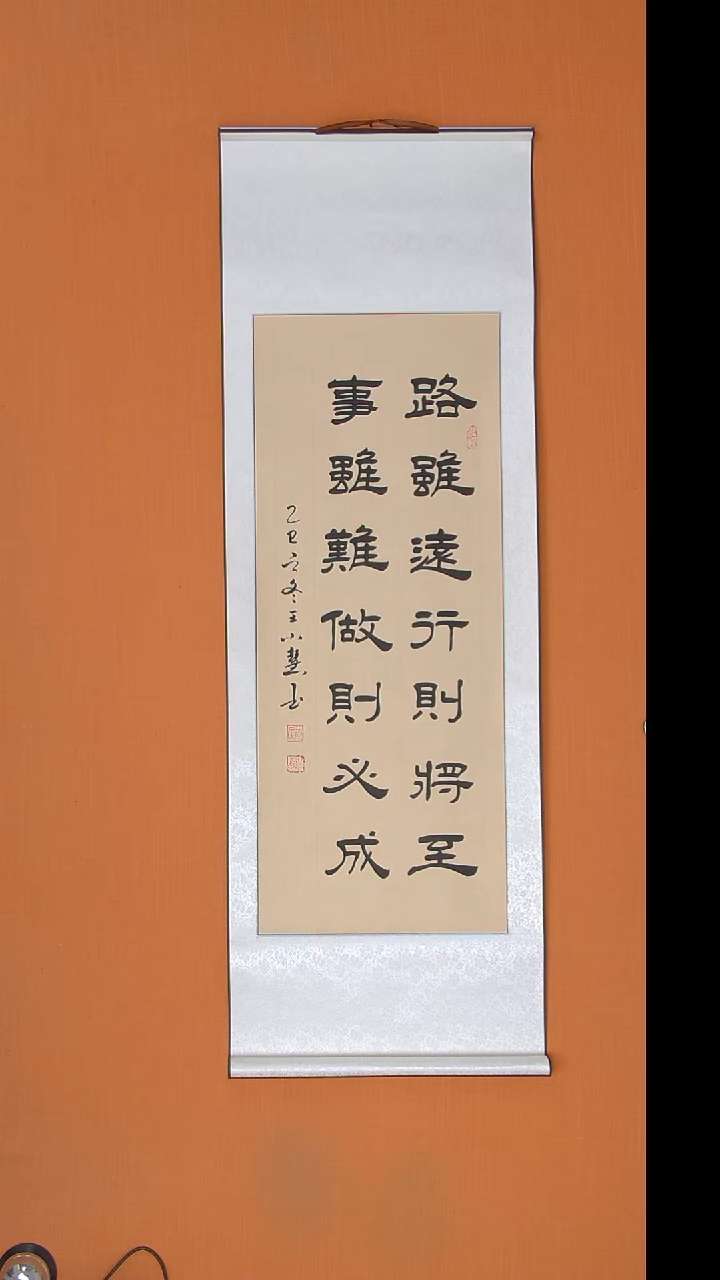 路雖遠行則將至
事雖難做則必成
乙巳之冬王小慧書